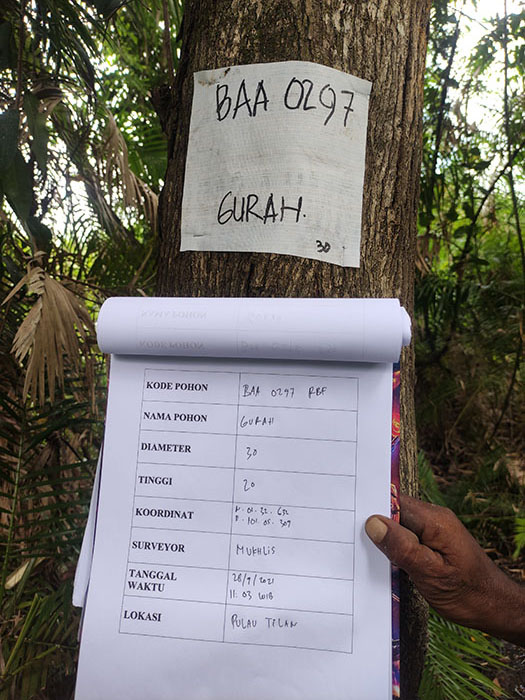 BAA 0297
GURAH.
30
KODE POHON BAA 0297 RBF
NAMA POHON GURAH
DIAMETER 30
TINGGI 20
KOORDINAT N. 01. 32. 652
E. 101. 05. 309
SURVEYOR MUKHLIS
TANGGAL 28/9/2021
WAKTU 11: 03 WIB
LOKASI PULAU TILAN